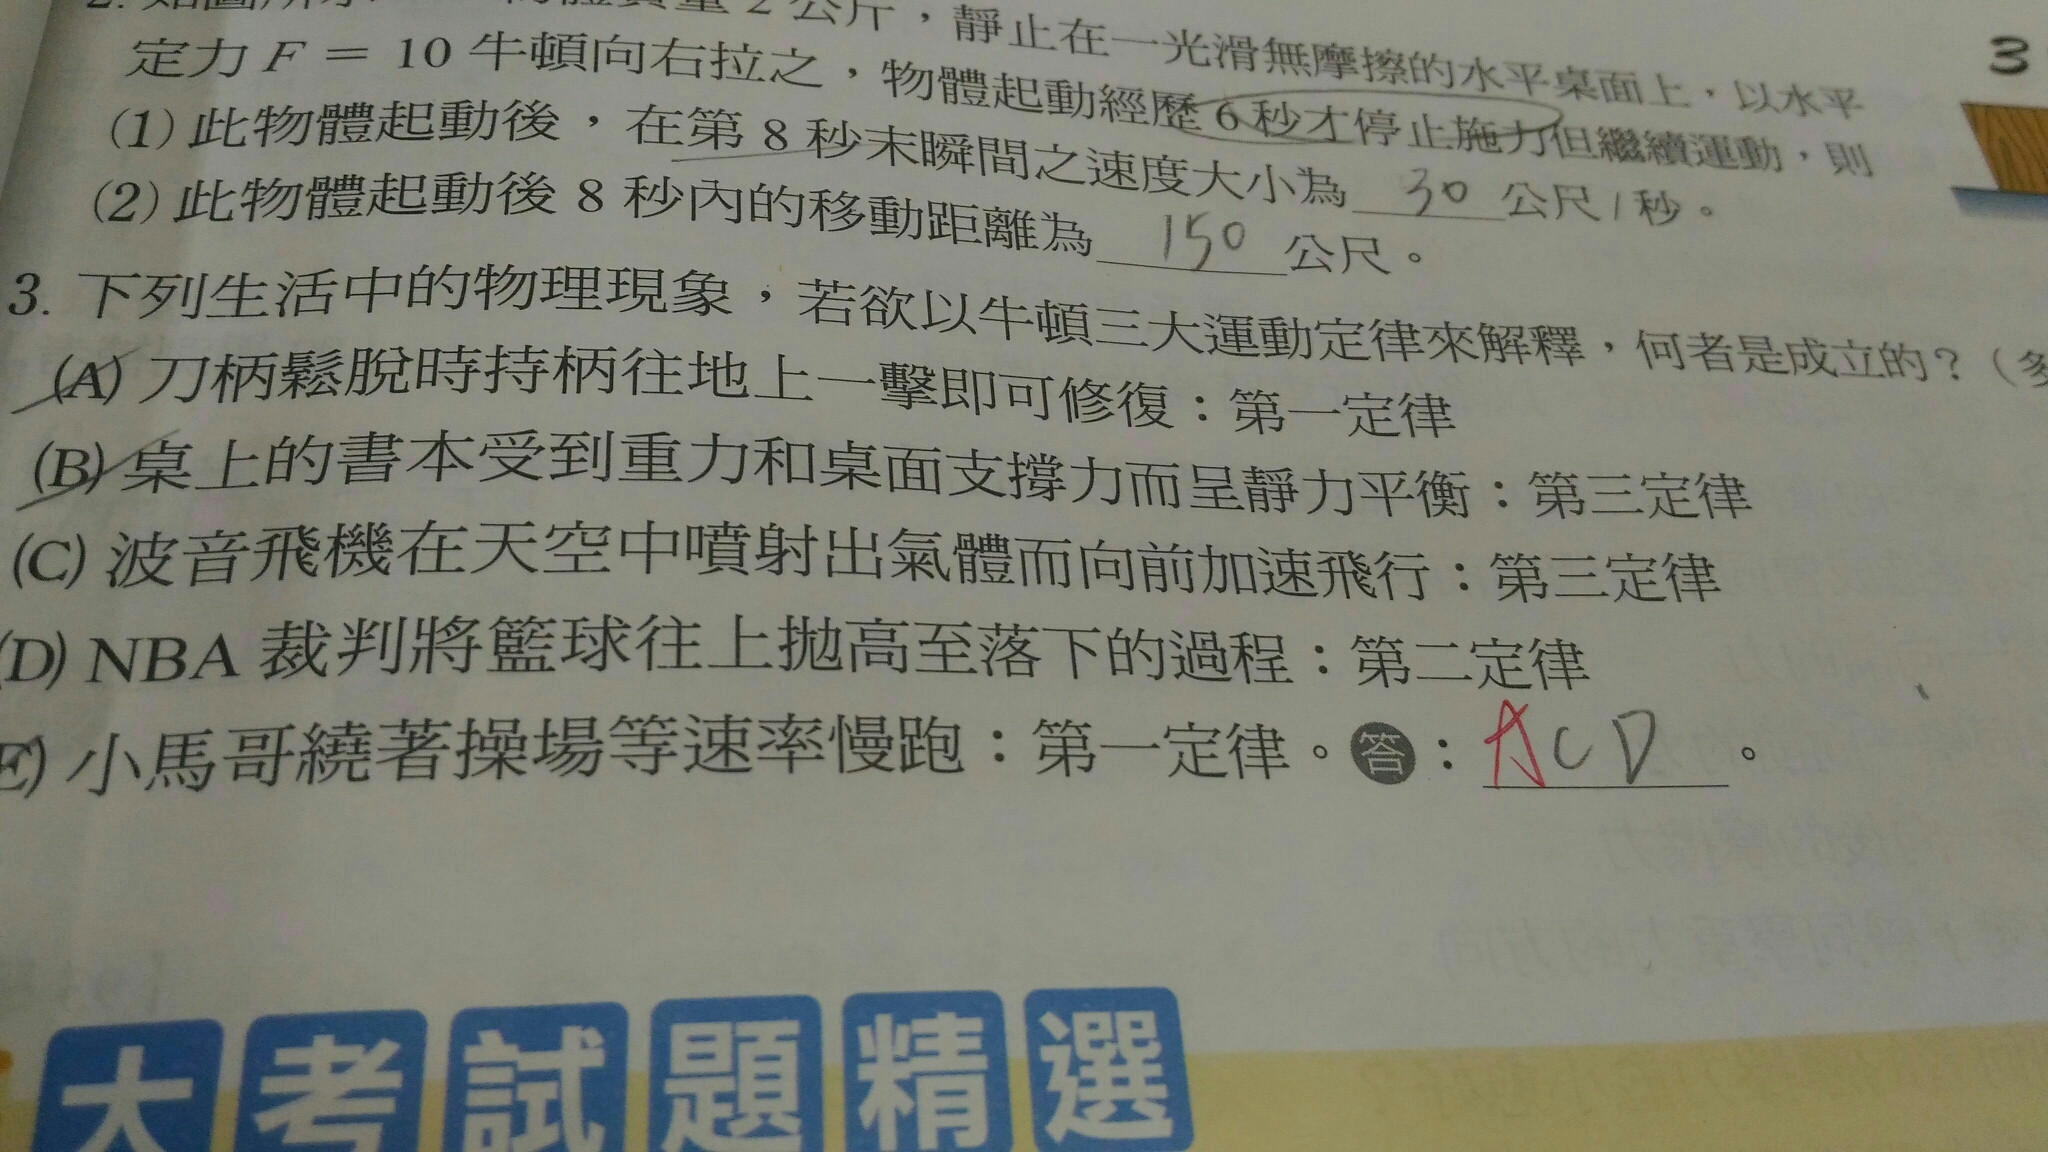 2. 2 公斤，靜止在一光滑無摩擦的水平桌面上，以水平
定力 F = 10 牛頓向右拉之，物體起動經歷 6 秒才停止施力但繼續運動，則
(1) 此物體起動後，在第 8 秒末瞬間之速度大小為 30 公尺/秒。
(2) 此物體起動後 8 秒內的移動距離為 150 公尺。
3. 下列生活中的物理現象，若欲以牛頓三大運動定律來解釋，何者是成立的？（多
(A) 刀柄鬆脫時持柄往地上一擊即可修復：第一定律
(B) 桌上的書本受到重力和桌面支撐力而呈靜力平衡：第三定律
(C) 波音飛機在天空中噴射出氣體而向前加速飛行：第三定律
(D) NBA 裁判將籃球往上拋高至落下的過程：第二定律
E) 小馬哥繞著操場等速率慢跑：第一定律。答：ACD。
3
大考試題精選